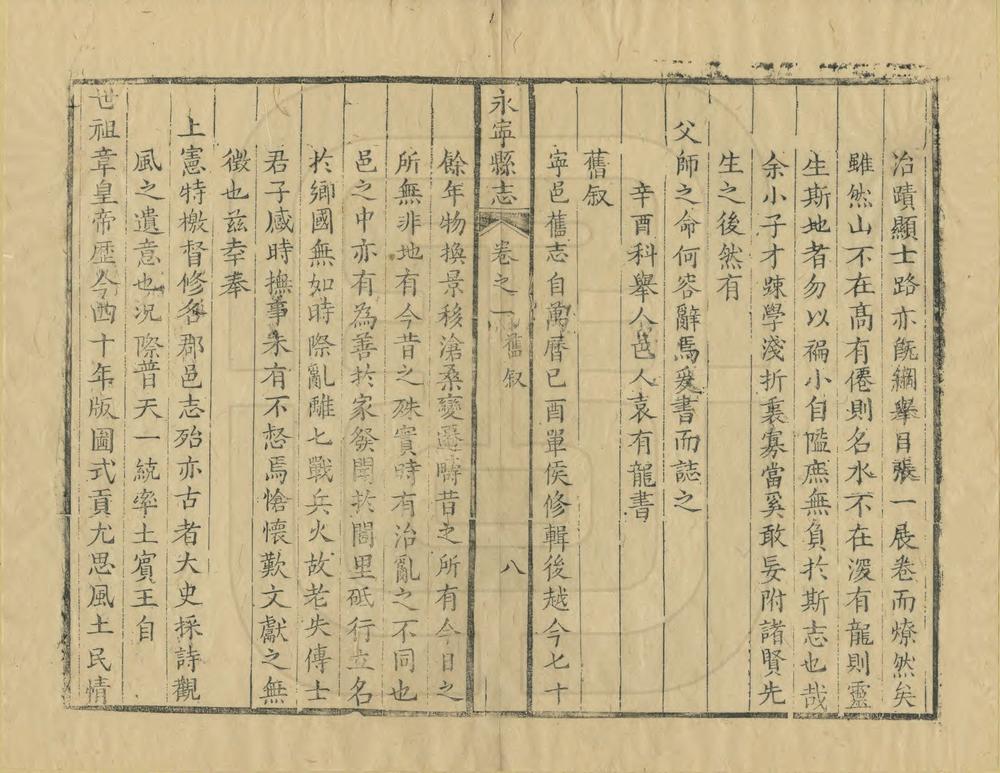 冶蹟顯士路亦旣綱舉目張一展卷而燎然矣
雖然山不在髙有僊則名水不在深有龍則靈
生斯地者勿以褊小自隘庶無負於斯志也哉
余小子才踈學淺折衷寡當奚敢妄附諸賢先
生之後然有
父師之命何容辭焉爰書而誌之
辛酉科舉人邑人袁有龍書
舊叙
寧邑舊志自萬曆已酉單侯修輯後越今七十
永寧縣志 卷之一 舊叙 八
餘年物換景移滄桑變遷疇昔之所有今日之
所無非地有今昔之殊實時有治亂之不同也
邑之中亦有為善於家發聞於閭里砥行立名
於鄉國無如時際亂離七戰兵火故老失傳士
君子感時撫事未有不惄焉愴懷歎文獻之無
徵也兹幸奉
上憲特檄督修各郡邑志殆亦古者大史採詩觀
風之遺意也況際普天一統率土賓王自
世祖章皇帝歷今四十年版圖式貢尤思風土民情